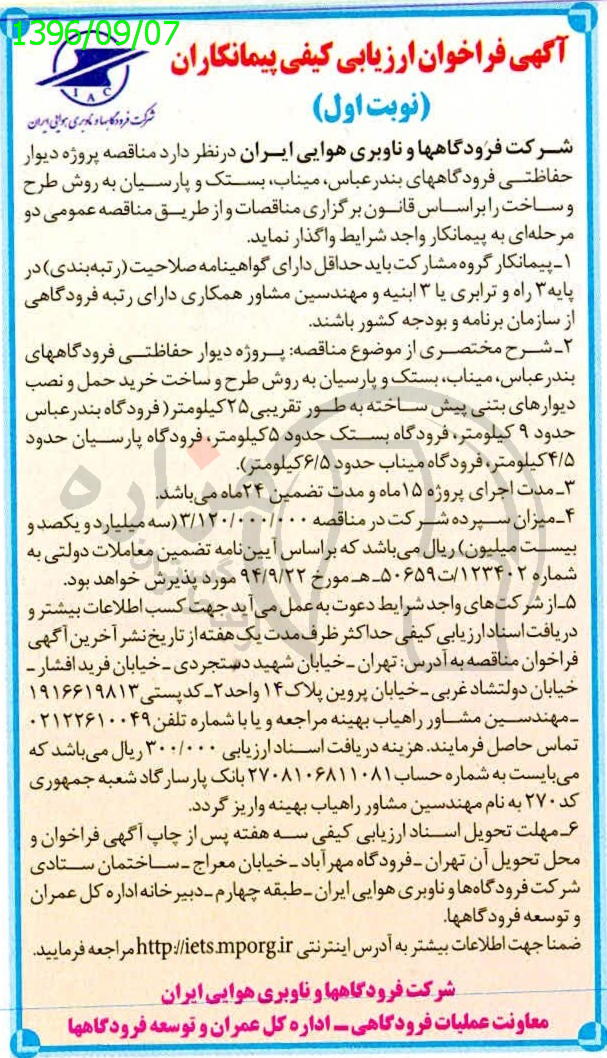 1396/09/07
آگهی فراخوان ارزیابی کیفی پیمانکاران
(نوبت اول)
IAC
شرکت فرودگاهها و ناوبری هوایی ایران
شرکت فرودگاهها و ناوبری هوایی ایران در نظر دارد مناقصه پروژه دیوار
حفاظتی فرودگاههای بندرعباس، میناب، بستک و پارسیان به روش طرح
و ساخت را بر اساس قانون برگزاری مناقصات و از طریق مناقصه عمومی دو
مرحله‌ای به پیمانکار واجد شرایط واگذار نماید.
۱ـ پیمانکار گروه مشارکت باید حداقل دارای گواهینامه صلاحیت (رتبه‌بندی) در
پایه ۳ راه و ترابری یا ۳ ابنیه و مهندسین مشاور همکاری دارای رتبه فرودگاهی
از سازمان برنامه و بودجه کشور باشند.
۲ـ شرح مختصری از موضوع مناقصه: پروژه دیوار حفاظتی فرودگاههای
بندرعباس، میناب، بستک و پارسیان به روش طرح و ساخت خرید حمل و نصب
دیوارهای بتنی پیش ساخته به طور تقریبی ۲۵ کیلومتر (فرودگاه بندرعباس
حدود ۹ کیلومتر، فرودگاه بستک حدود ۵ کیلومتر، فرودگاه پارسیان حدود
۴/۵ کیلومتر، فرودگاه میناب حدود ۶/۵ کیلومتر).
۳ـ مدت اجرای پروژه ۱۵ ماه و مدت تضمین ۲۴ ماه می‌باشد.
۴ـ میزان سپرده شرکت در مناقصه ۳/۱۲۰/۰۰۰/۰۰۰ (سه میلیارد و یکصد و
بیست میلیون) ریال می‌باشد که بر اساس آیین‌نامه تضمین معاملات دولتی به
شماره ۱۲۳۴۰۲/ت۵۰۶۵۹ـ هـ مورخ ۹۴/۹/۲۲ مورد پذیرش خواهد بود.
۵ـ از شرکت‌های واجد شرایط دعوت به عمل می‌آید جهت کسب اطلاعات بیشتر و
دریافت اسناد ارزیابی کیفی حداکثر ظرف مدت یک هفته از تاریخ نشر آخرین آگهی
فراخوان مناقصه به آدرس: تهران ـ خیابان شهید دستجردی ـ خیابان فرید افشار ـ
خیابان دولتشاد غربی ـ خیابان پروین پلاک ۱۴ واحد ۲ـ کدپستی ۱۹۱۶۶۱۹۸۱۳
ـ مهندسین مشاور راهیاب بهینه مراجعه و یا با شماره تلفن ۰۲۱۲۲۶۱۰۰۴۹
تماس حاصل فرمایند. هزینه دریافت اسناد ارزیابی ۳۰۰/۰۰۰ ریال می‌باشد که
می‌بایست به شماره حساب ۲۷۰۸۱۰۶۸۱۱۰۸۱ بانک پارسارگاد شعبه جمهوری
کد ۲۷۰ به نام مهندسین مشاور راهیاب بهینه واریز گردد.
۶ـ مهلت تحویل اسناد ارزیابی کیفی سه هفته پس از چاپ آگهی فراخوان و
محل تحویل آن تهران ـ فرودگاه مهرآباد ـ خیابان معراج ـ ساختمان ستادی
شرکت فرودگاه‌ها و ناوبری هوایی ایران ـ طبقه چهارم ـ دبیرخانه اداره کل عمران
و توسعه فرودگاهها.
ضمنا جهت اطلاعات بیشتر به آدرس اینترنتی http://iets.mporg.ir مراجعه فرمایید.
شرکت فرودگاهها و ناوبری هوایی ایران
معاونت عملیات فرودگاهی ـ اداره کل عمران و توسعه فرودگاهها